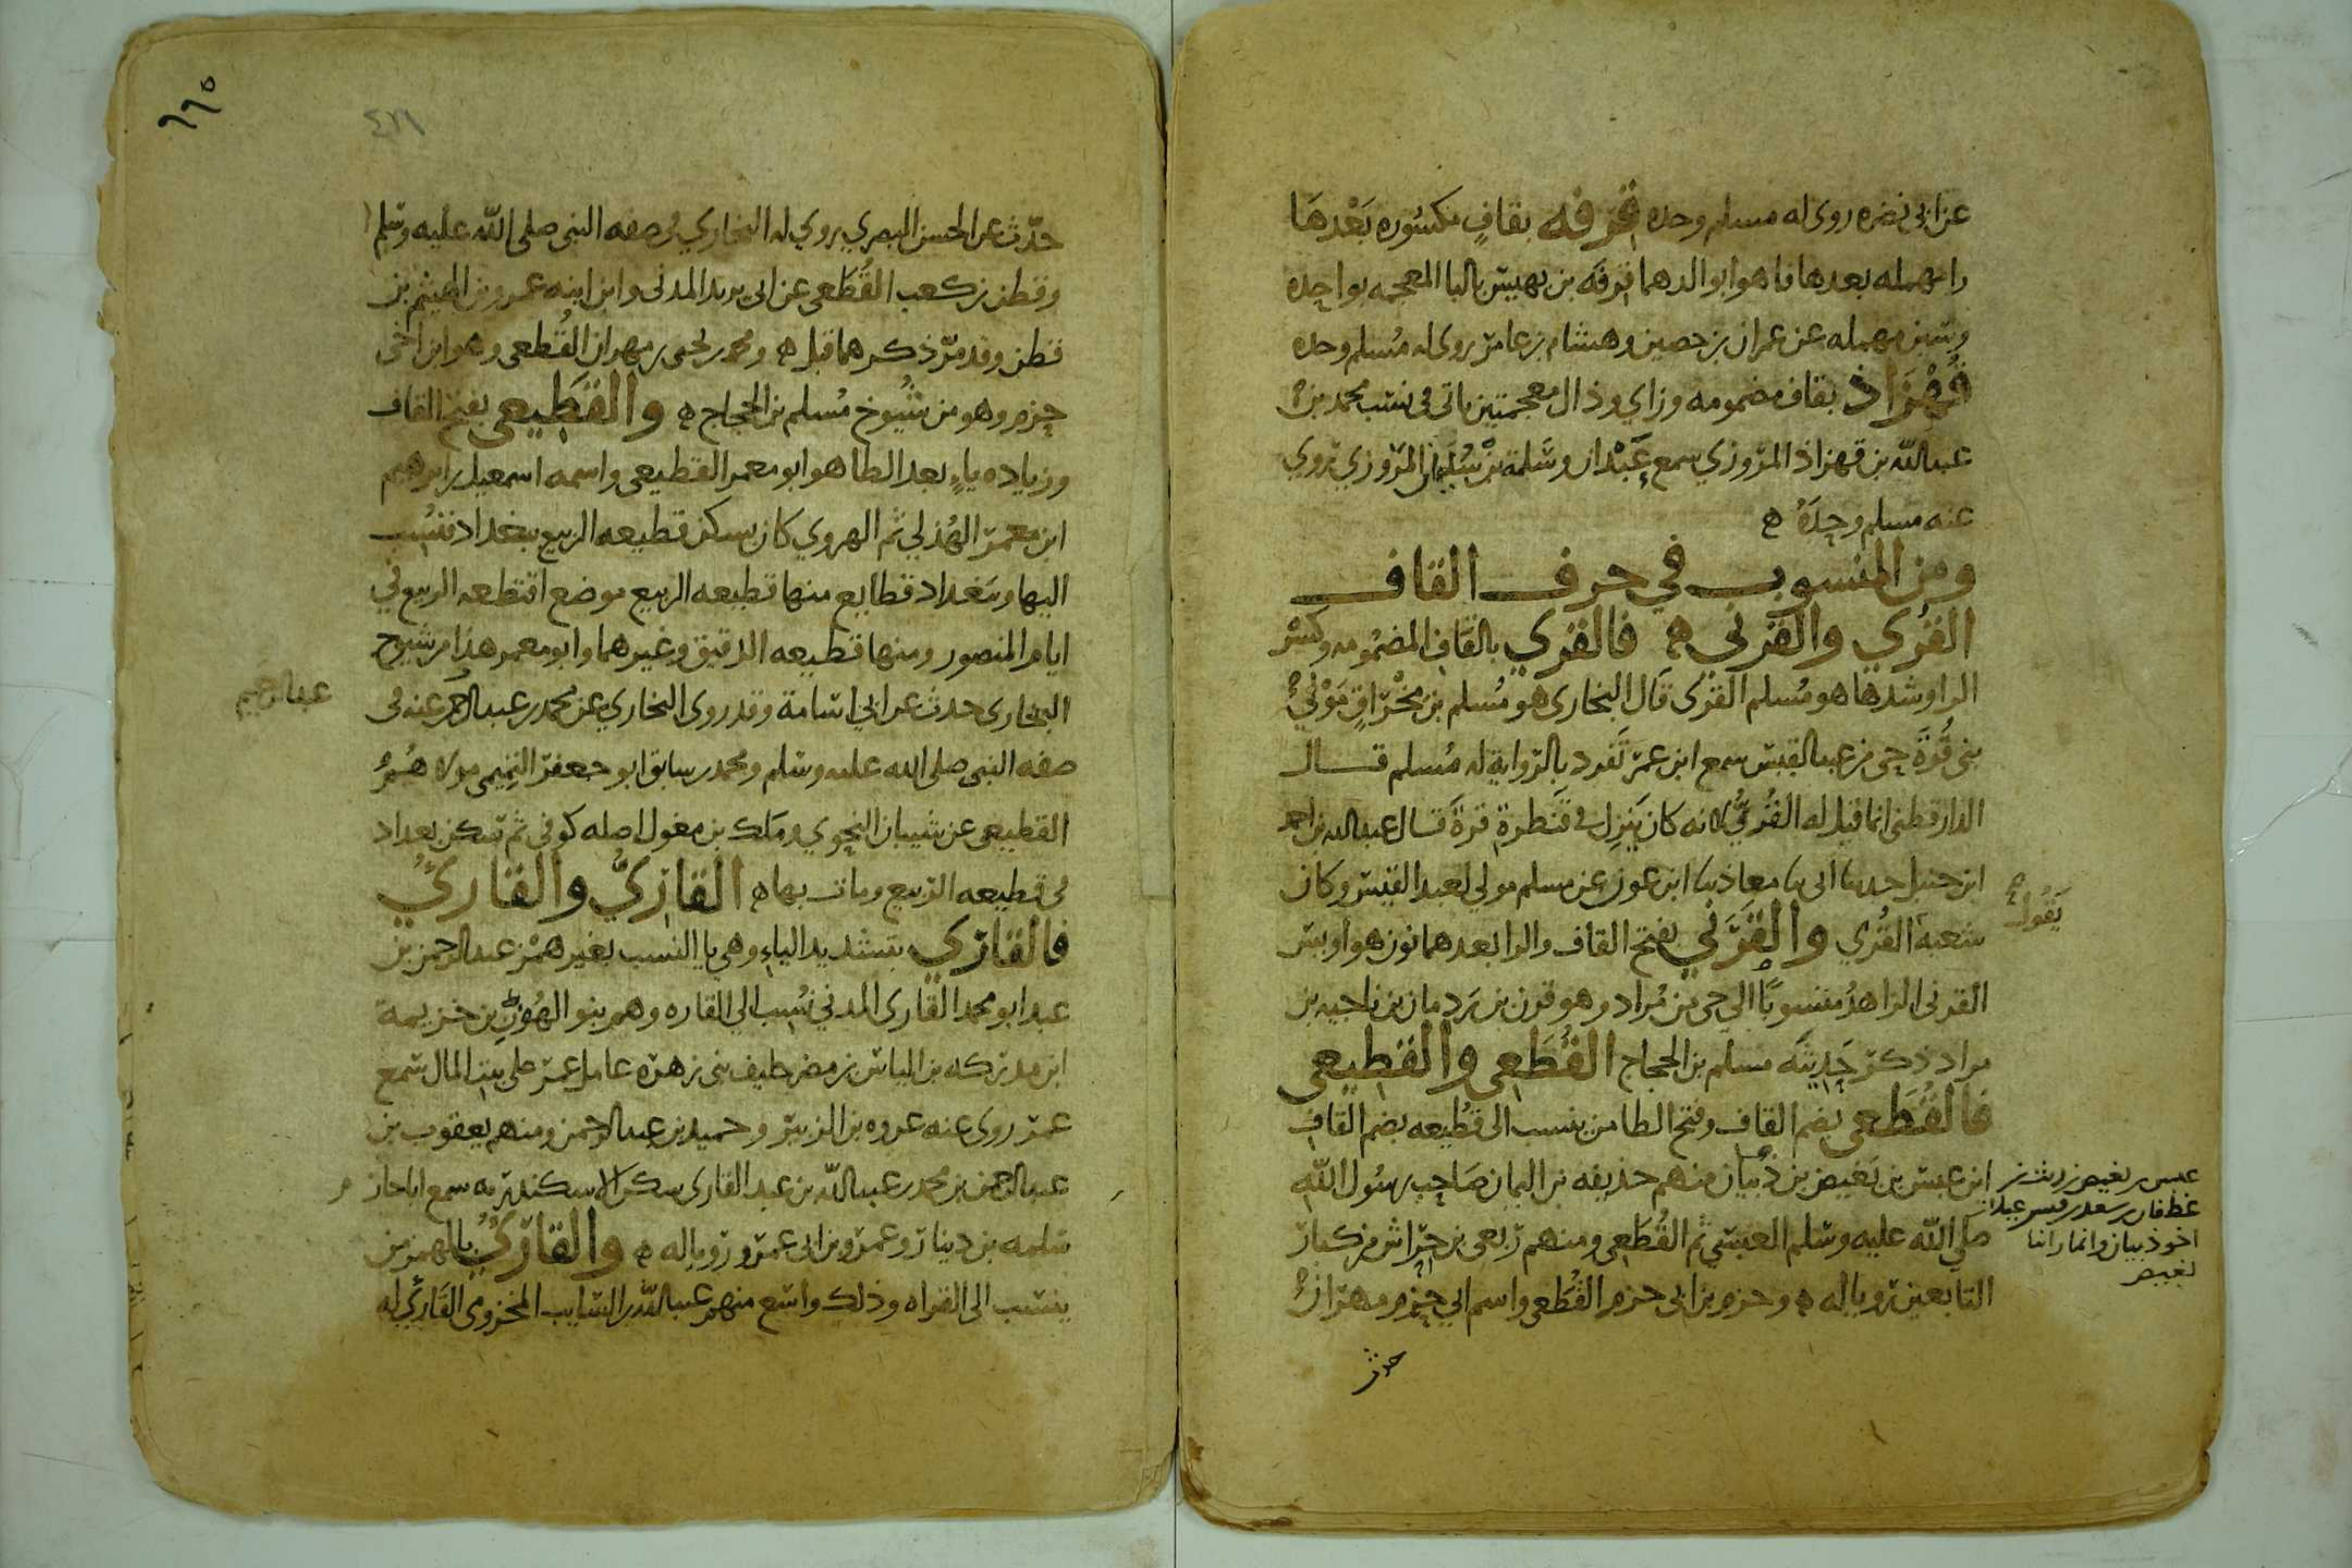 عن ابي نضره روى له مسلم وحده قرفه بقافٍ مكسوره بَعْدهَا
را مهمله بعدها فا هو ابو الدهما قرفَه بن بهيس بالبا المعجمه بواحده
وسين مهمله عن عمران بن حصين وهشام بن عامر روى له مُسلم وحده
قُهْزَاذ بقاف مضمومه وزاي وذال معجمتين ياتى فى نسب محمد بن
عبدالله بن قهزاذ المروزي سمع عَبْدان وسَلمة بن سُليمان المروزي يروي
عنه مسلم وحدَهُ ه
ومن المنسوب في حرف القاف
القُري والقَرَني ه فالقري بالقَاف المضمُومه وكسر
الرا وشدها هو مُسلم القرى قال البخارى هو مُسلم بن مِخْرَاقٍ مَوْلَى
بنى قُرَّةَ حى من عبد القيس سمع ابن عمر تَفرد بالرواية له مُسلم قال
الدارقطنى انما قيل له القُرِّيُّ لانه كان يَنزِل فى قَنطَرة قرةَ قال عبدالله بن احمد
ابن حنبل حدثنا ابى نا معاذ نا ابن عون عن مسلم مولى لعبد القيس وكان
يَقُول
شعبه القُرى والقَرَني بفتح القاف والرا بعدهما نون هو أويس
القرنى الزاهدُ منسوبًا الى حى من مُراد وهو قرن بن رَدمان بن ناجيه بن
مراد ذكر حَديثَه مسلم بن الحجاج القُطَعِى والقَطِيعى
فالقُطَعى بضم القاف وفتح الطا من ينسب الى قُطَيعه بضم القاف
ابن عبس بن بَغيض بن ذُبيان منهم حذيفه بن اليمان صَاحِب رسُول الله
عبس بن بغيض بن ريث بن
غطفان بن سعد بن قيس عيلان
اخو ذبيان وانمار ابنا
بغيض
صلى الله عليه وسلم العبسى ثم القُطَعِى ومنهم رِبعى بن حِرَاش من كبار
التابعين رويا له ه وحزم بن ابى حزم القُطَعى واسم ابى حزم مهران
حدث
٦٦٥
حدّث عن الحسن البصري روي له البخاري فى صفه النبى صلى الله عليه وسلم
وقطن بن كعب القُطَعى عن ابى يزيد المدنى وابن ابنه عمرو بن الهيثم بن
قطن وقد مرّ ذكرهما قبل ه ومحمد بن يحيى بن مهران القُطعى وهو ابن اخى
حزم وهو من شُيوخ مُسلم بن الحجاج ه والقَطِيعى بفتح القاف
وزياده ياءٍ بعد الطا هو ابو معمر القطيعى واسمه اسمعيل بن ابرهيم
ابن معمر الهُذلي ثم الهروي كان يسكن قطيعه الربيع ببغداد فنُسب
اليها وببَغداد قطايع منها قطيعه الربيع موضع اقتطعه الربيع في
ايام المنصور ومنها قطيعه الدقيق وغيرهما وابو معمر هذا من شيوخ
البخارى حدث عن ابي اسَامة وقد روى البخاري عن محمد بن عبد الرحيم عنه فى
عبد الرحيم
صفه النبى صلى الله عليه وسلم ومحمد بن سابق ابو جعفر التميمى مولاهُمُ
القطيعى عن شيبان النحوي ومَلك بن مغول اصله كوفى ثم سكن بغداد
فى قطيعه الربيع ومات بها ه القاريُّ والقاريُ
فالقاري بتشديد الياء وهى يا النسب بغير همْز عبد الرحمن بن
عبد ابو محمد القَّارى المدني نُسِب الى القاره وهم بنو الهُونِ بن خزيمة
ابن مدركه بن الياس بن مضر حليف بنى زهرة عامل عمر على بيت المال سَمع
عمر روى عنه عروه بن الزبير وحميد بن عبد الرحمن ومنهم يعقوب بن
عبد الرحمن بن محمد بن عبد الله بن عبد القارى سكن الاسكندريه سمع ابا حازم
سلمه بن دينار وعمرو بن ابى عمرو رويا له ه والقارئُ بالهمز من
ينسب الى القراه وذلك واسع منهم عبد الله بن السايب المخزومى القارئ له